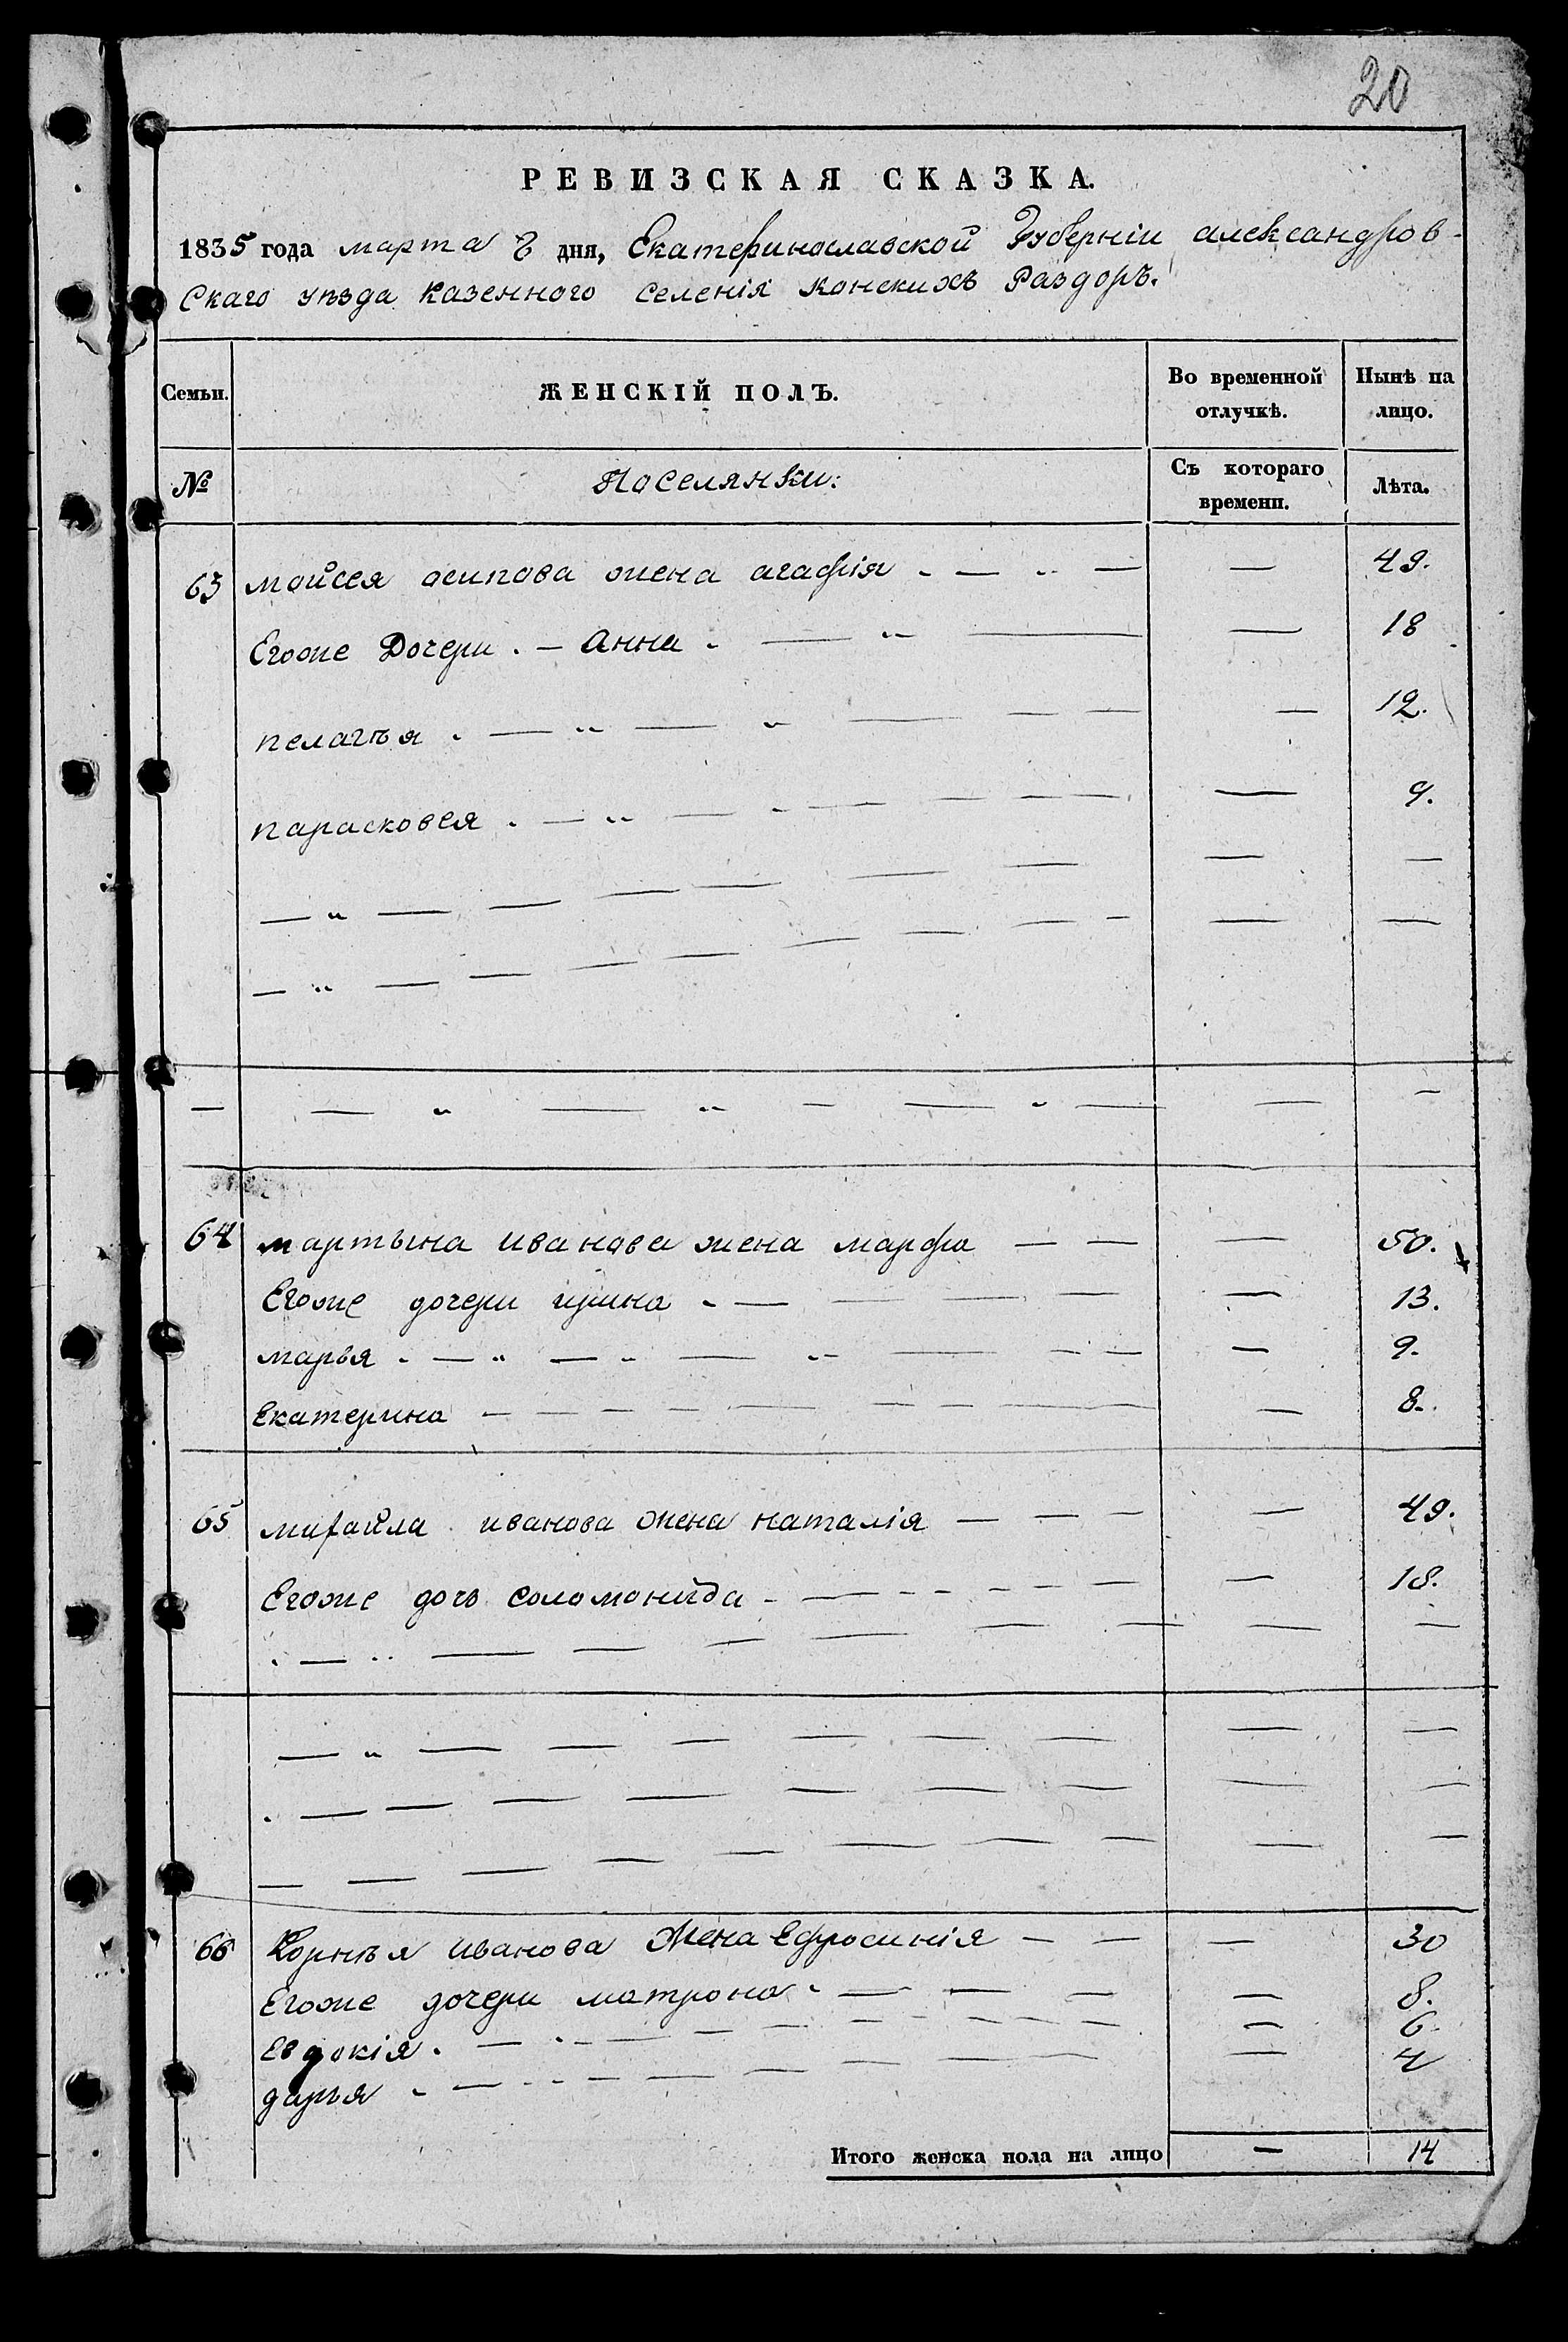 20
РЕВИЗСКАЯ СКАЗКА.
1835 года марта 8 дня, Екатеринославской Губерніи александров-
Скаго уѣзда Казенного Селенія Конскихъ Раздоръ.
Семьи. ЖЕНСКІЙ ПОЛЪ. Во временной отлучкѣ. Нынѣ на лицо.
№ Поселянки: Съ котораго времени. Лѣта.
63 мойсея осипова жена агафія — 49.
Егоже Дочери. — Анна — 18
пелагѣя — 12.
парасковея — 9.
64 мартына иванова жена марфа — 50.
Егоже дочери ирина — 13.
марья — 9.
Екатерина — 8.
65 михайла иванова жена наталія — 49.
Егоже дочь соломонида — 18.
66 Корнѣя иванова Жена Ефросинія — 30
Егоже дочери матрона — 8.
Евдокія — 6.
дарья — 4
Итого женска пола на лицо — 14